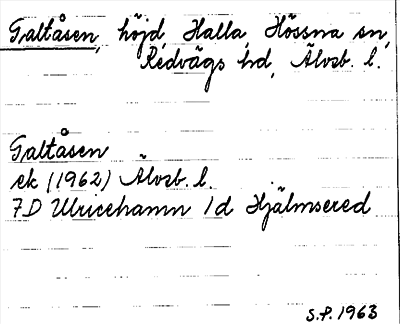 Galtåsen, höjd, Halla, Hössna sn,
Redvägs hd, Älvsb. l.
Galtåsen
ek (1962) Älvsb. l.
7D Ulricehamn 1d Hjälmsered
S.P. 1963